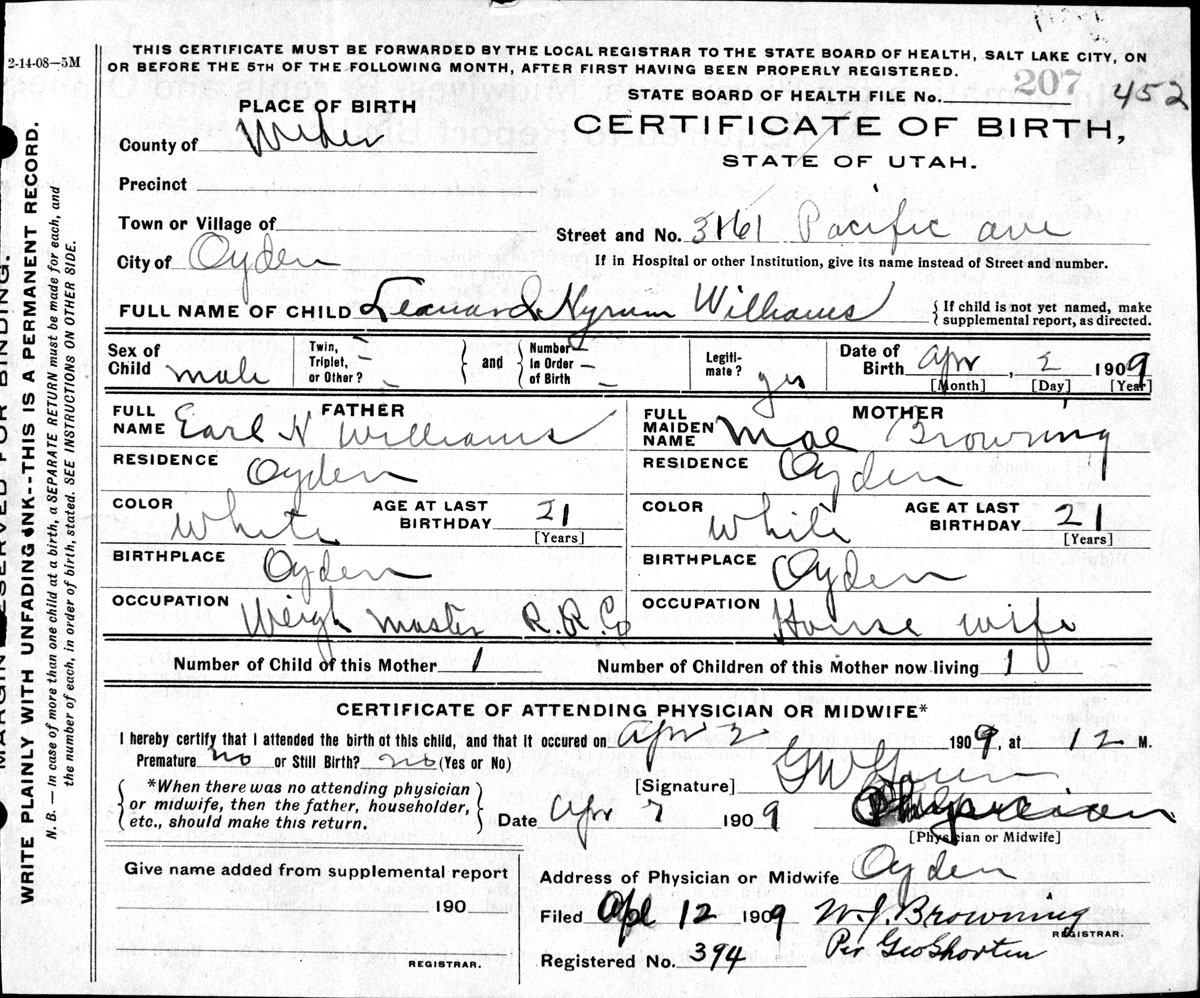 2-14-08—5M
THIS CERTIFICATE MUST BE FORWARDED BY THE LOCAL REGISTRAR TO THE STATE BOARD OF HEALTH, SALT LAKE CITY, ON
OR BEFORE THE 5TH OF THE FOLLOWING MONTH, AFTER FIRST HAVING BEEN PROPERLY REGISTERED.
STATE BOARD OF HEALTH FILE No. 207 452
PLACE OF BIRTH
CERTIFICATE OF BIRTH,
STATE OF UTAH.
County of Weber
Precinct
Town or Village of
Street and No. 3161 Pacific ave
City of Ogden
If in Hospital or other Institution, give its name instead of Street and number.
FULL NAME OF CHILD Leonard Hyrum Williams
{If child is not yet named, make supplemental report, as directed.
Sex of Child male
Twin, Triplet, or Other? —
and
Number in Order of Birth —
Legitimate? yes
Date of Birth Apr, 2 1909
[Month] [Day] [Year]
FATHER
FULL NAME Earl N Williams
MOTHER
FULL MAIDEN NAME Mae Browning
RESIDENCE Ogden
RESIDENCE Ogden
COLOR White AGE AT LAST BIRTHDAY 21 [Years]
COLOR White AGE AT LAST BIRTHDAY 21 [Years]
BIRTHPLACE Ogden
BIRTHPLACE Ogden
OCCUPATION Weigh master R.R. Co
OCCUPATION House wife
Number of Child of this Mother 1
Number of Children of this Mother now living 1
CERTIFICATE OF ATTENDING PHYSICIAN OR MIDWIFE*
I hereby certify that I attended the birth of this child, and that it occured on Apr 2 1909, at 12 M.
Premature no or Still Birth? no (Yes or No)
[Signature] G W
*When there was no attending physician
or midwife, then the father, householder,
etc., should make this return.
Date Apr 7 1909 Physician
[Physician or Midwife]
Give name added from supplemental report
190
REGISTRAR.
Address of Physician or Midwife Ogden
Filed Apl 12 1909 W. J. Browning
REGISTRAR.
Registered No. 394 Per Geo Shorten
MARGIN RESERVED FOR BINDING.
WRITE PLAINLY WITH UNFADING INK--THIS IS A PERMANENT RECORD.
N. B. — In case of more than one child at a birth, a SEPARATE RETURN must be made for each, and
the number of each, in order of birth, stated. SEE INSTRUCTIONS ON OTHER SIDE.